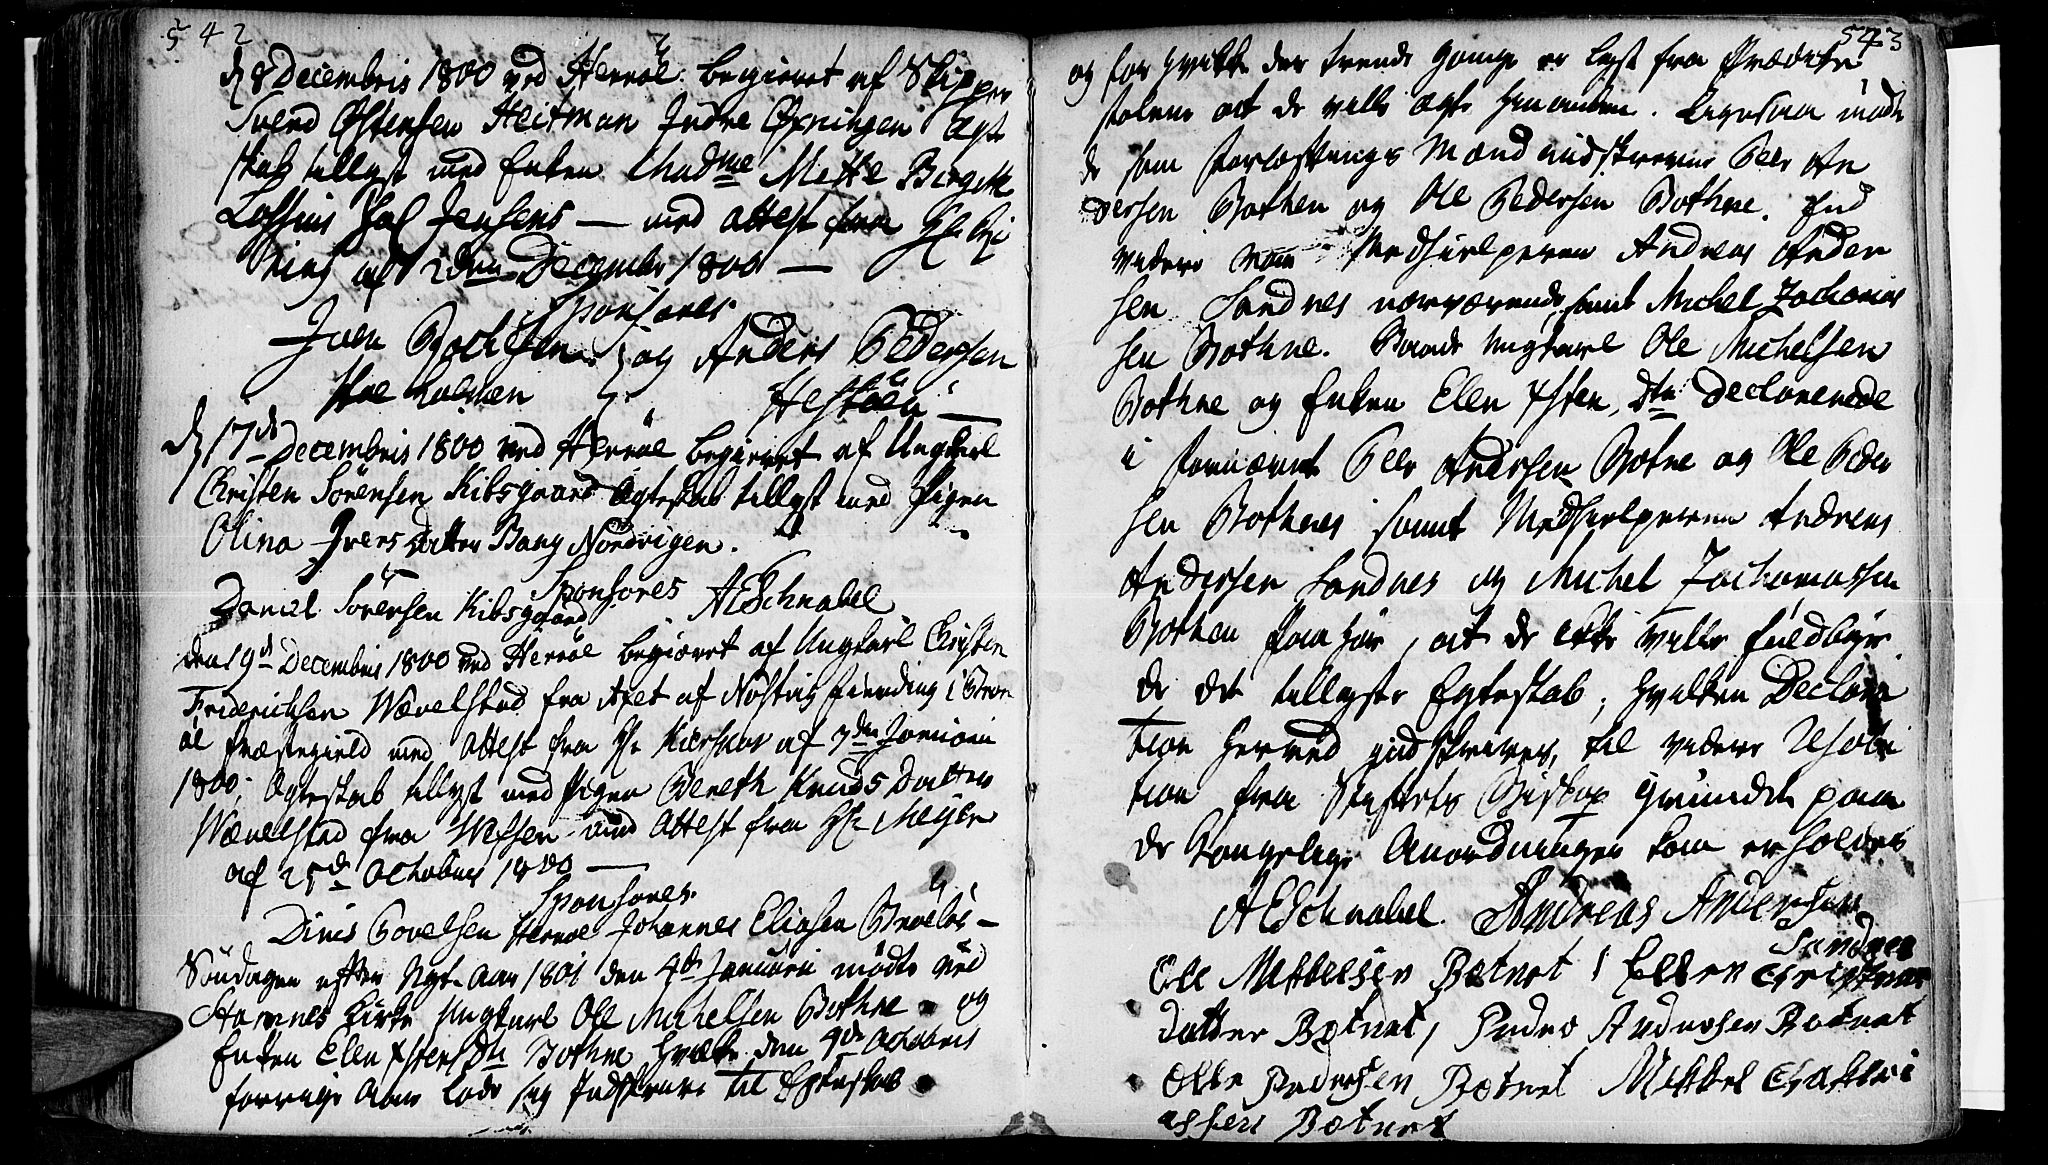 542
d 8 Decembris 1800 ved Herröe begieret af Skipper
Svend Østensen Heitman Indre Øxningen Ægte
skab tillyst med Enken Madme Mette Birgitte
Sal Jensens — med Attest fra Hr
af 2den December 1800 —
Sponsores
Iven Bochelsen og Anders Pedersen
Hestöen —
d 17de Decembris 1800 ved Herröe begieret af Ungkarl
Christen Sörensen Kibsgaard Ægteskab tillyst med Pigen
Olina Ivers Datter Bang Nordvigen.
Sponsores
Daniel Sörensen Kibsgaard AESchnabel
den 19de Decembris 1800 ved Herröe begieret af Ungkarl Christen
Friderichsen Wævelstad fra Præstegield i Brön
öe Præstegield med Attest fra Hr af 7de Januarii
1800, Ægteskab tillyst med Pigen Bereth Knuds Datter
Wævelstad fra Wefsen med Attest fra Hr Meyer
af 25de Octobris 1800 —
Sponsores.
Dines Povelsen Herröe Johannes Eliasen —
Söndagen efter Nyt-Aar 1801 den 4de Januarii mödte ved
Stamnes Kirke Ungkarl Ole Michelsen Bothne og
Enken Elen Dtr Bothne hvilke den 9de Octobris
forrige Aar lode sig Indskrive til Egteskab
543
og for hvilke der trende gange er lyst fra Prædike
stolene at de ville ægte hinanden. Ligesaa mödte
de som Forlovnings Mænd indskrevne Peer An
dersen Bothen og Ole Pedersen Bothne. End
videre vare Medhielperen Andreas Ander
sen Sandnes nærværende, samt Michel Zacharias
sen Bothne. Baade Ungkarl Ole Michelsen
Bothne og Enken Elen Dtr declarerede
i fornævnte Peer Andersen Bothne og Ole Peder
sen Bothnes samt Medhielperen Andreas
Andersen Sandnes og Michel Zachariassen
Bothen Paahör, at de ikke ville fuldbyr
de det tillyste Egteskab; hvilken Declara
tion herved indskrives, til videre
tion fra Stiftets Biskop grundet paa
de Kongelige Anordninger kan erholdes
AESchnabel. Andreas Andersen
Sandnes
Ole Mekkelsen Botnet Ellen Christens
datter Botnet, Peder Andersen Botnet
Olle Pedersen Botnet Mekkel
assen Botnet